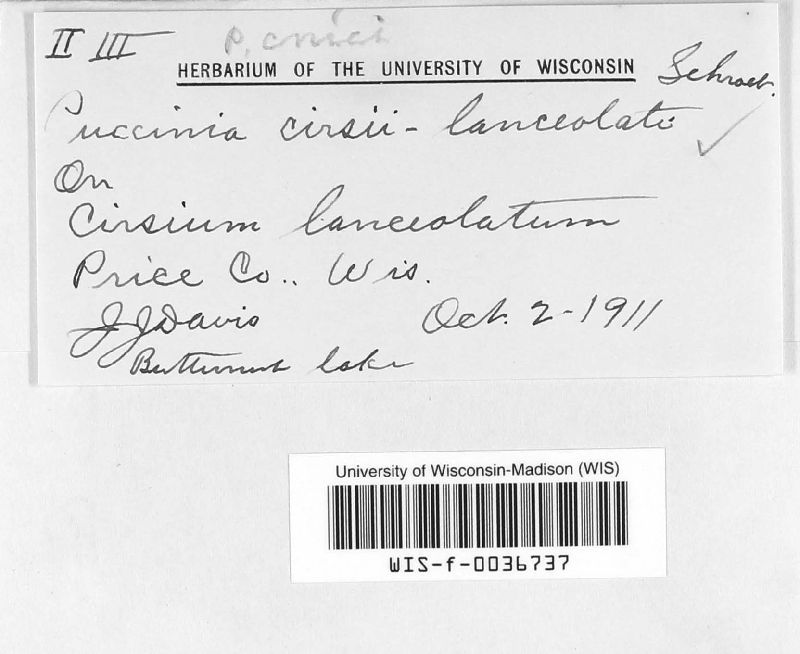 II III P. cnici
HERBARIUM OF THE UNIVERSITY OF WISCONSIN Schroet.
Puccinia cirsii - lanceolati
On
Cirsium lanceolatum
Price Co., Wis.
J J Davis Oct. 2 - 1911
Butternut lake
University of Wisconsin-Madison (WIS)
WIS-f-0036737